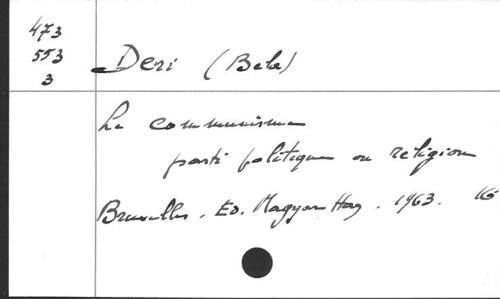 473
553
3
Deri (Bela)
Le communisme
parti politique ou religion
Bruxelles. Ed. Magyar Haz. 1963.